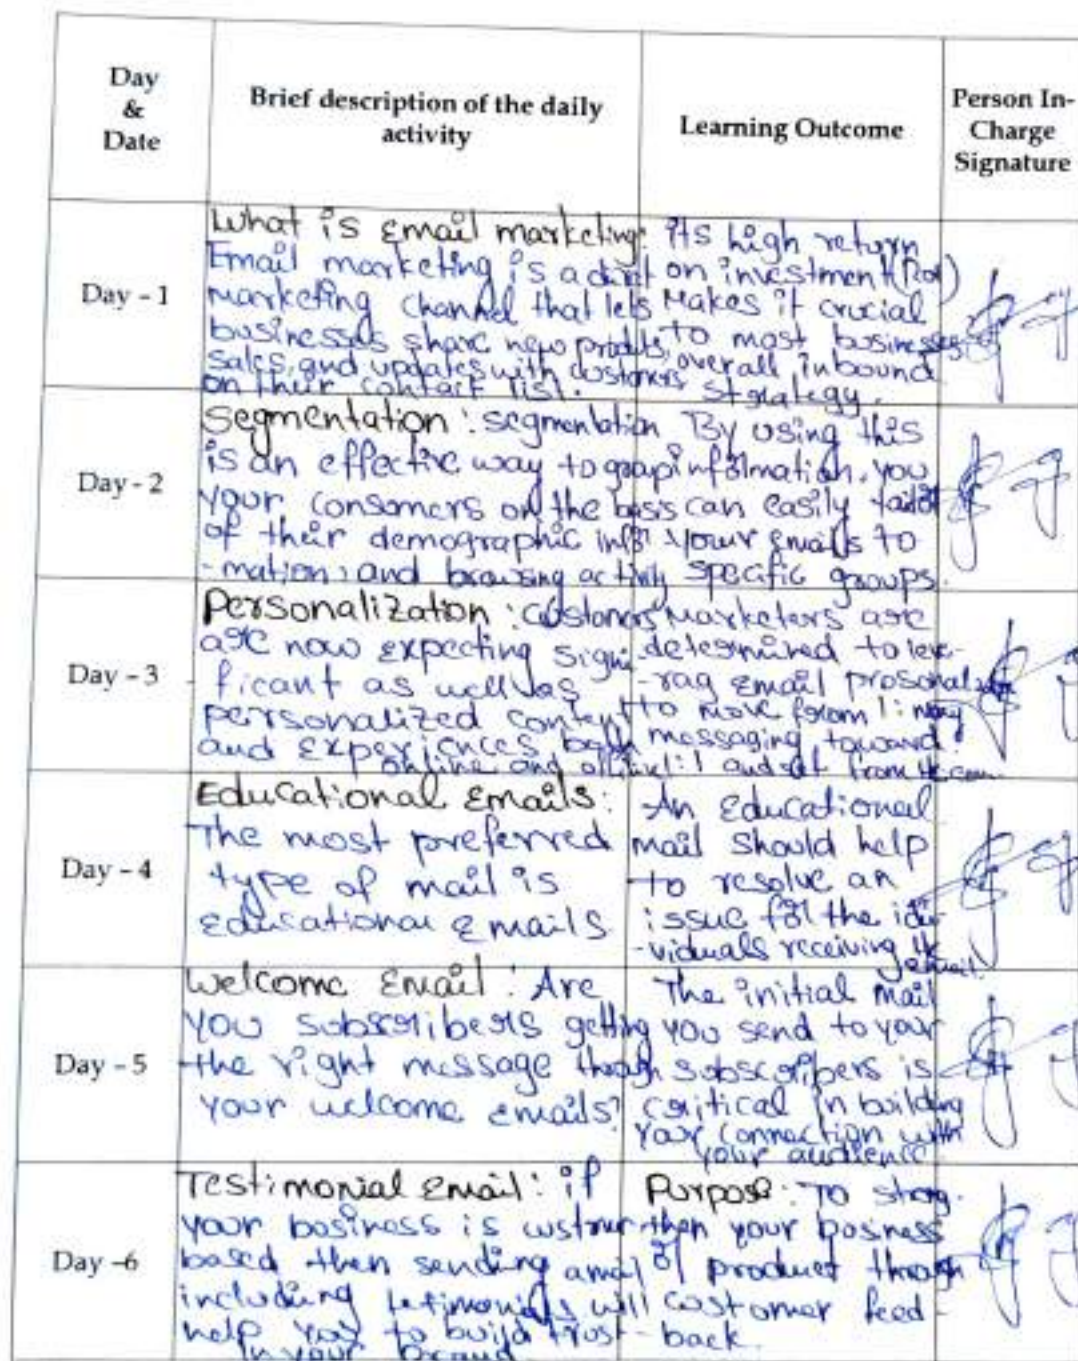 Day
&
Date
Brief description of the daily
activity
Learning Outcome
Person In-
Charge
Signature
Day - 1
What is Email marketing:
Email marketing is a direct
marketing channel that lets
businesses share new products,
sales, and updates with customers
on their contact list.
its high return
on investment (ROI)
Makes it crucial
to most businesses
overall inbound
strategy.
Day - 2
Segmentation : segmentation
is an effective way to group
your consomers on the basis
of their demographic info
-mation, and browsing activity
By using this
information, you
can easily tailor
your Emails to
specific groups.
Day - 3
Personalization : Customers
are now expecting signi
ficant as well as
personalized content
and experiences both
online and
Marketers are
determined to leve
-rag Email
to move from 1: many
messaging toward
1:1 and
Day - 4
Educational Emails:
The most preferred
type of mail is
educational Emails
An Educational
mail should help
to resolve an
issue for the idi
-viduals receiving the
email.
Day - 5
Welcome Email : Are
you subscribers getting
the right message though
your welcome emails?
The initial mail
you send to your
subscribers is
critical in building
your connection with
your audience
Day -6
Testimonial Email : if
your business is
based then sending
including will
help you to build trust
in your brand
Purpose : To streng-
then your business
or product through
customer feed
- back.